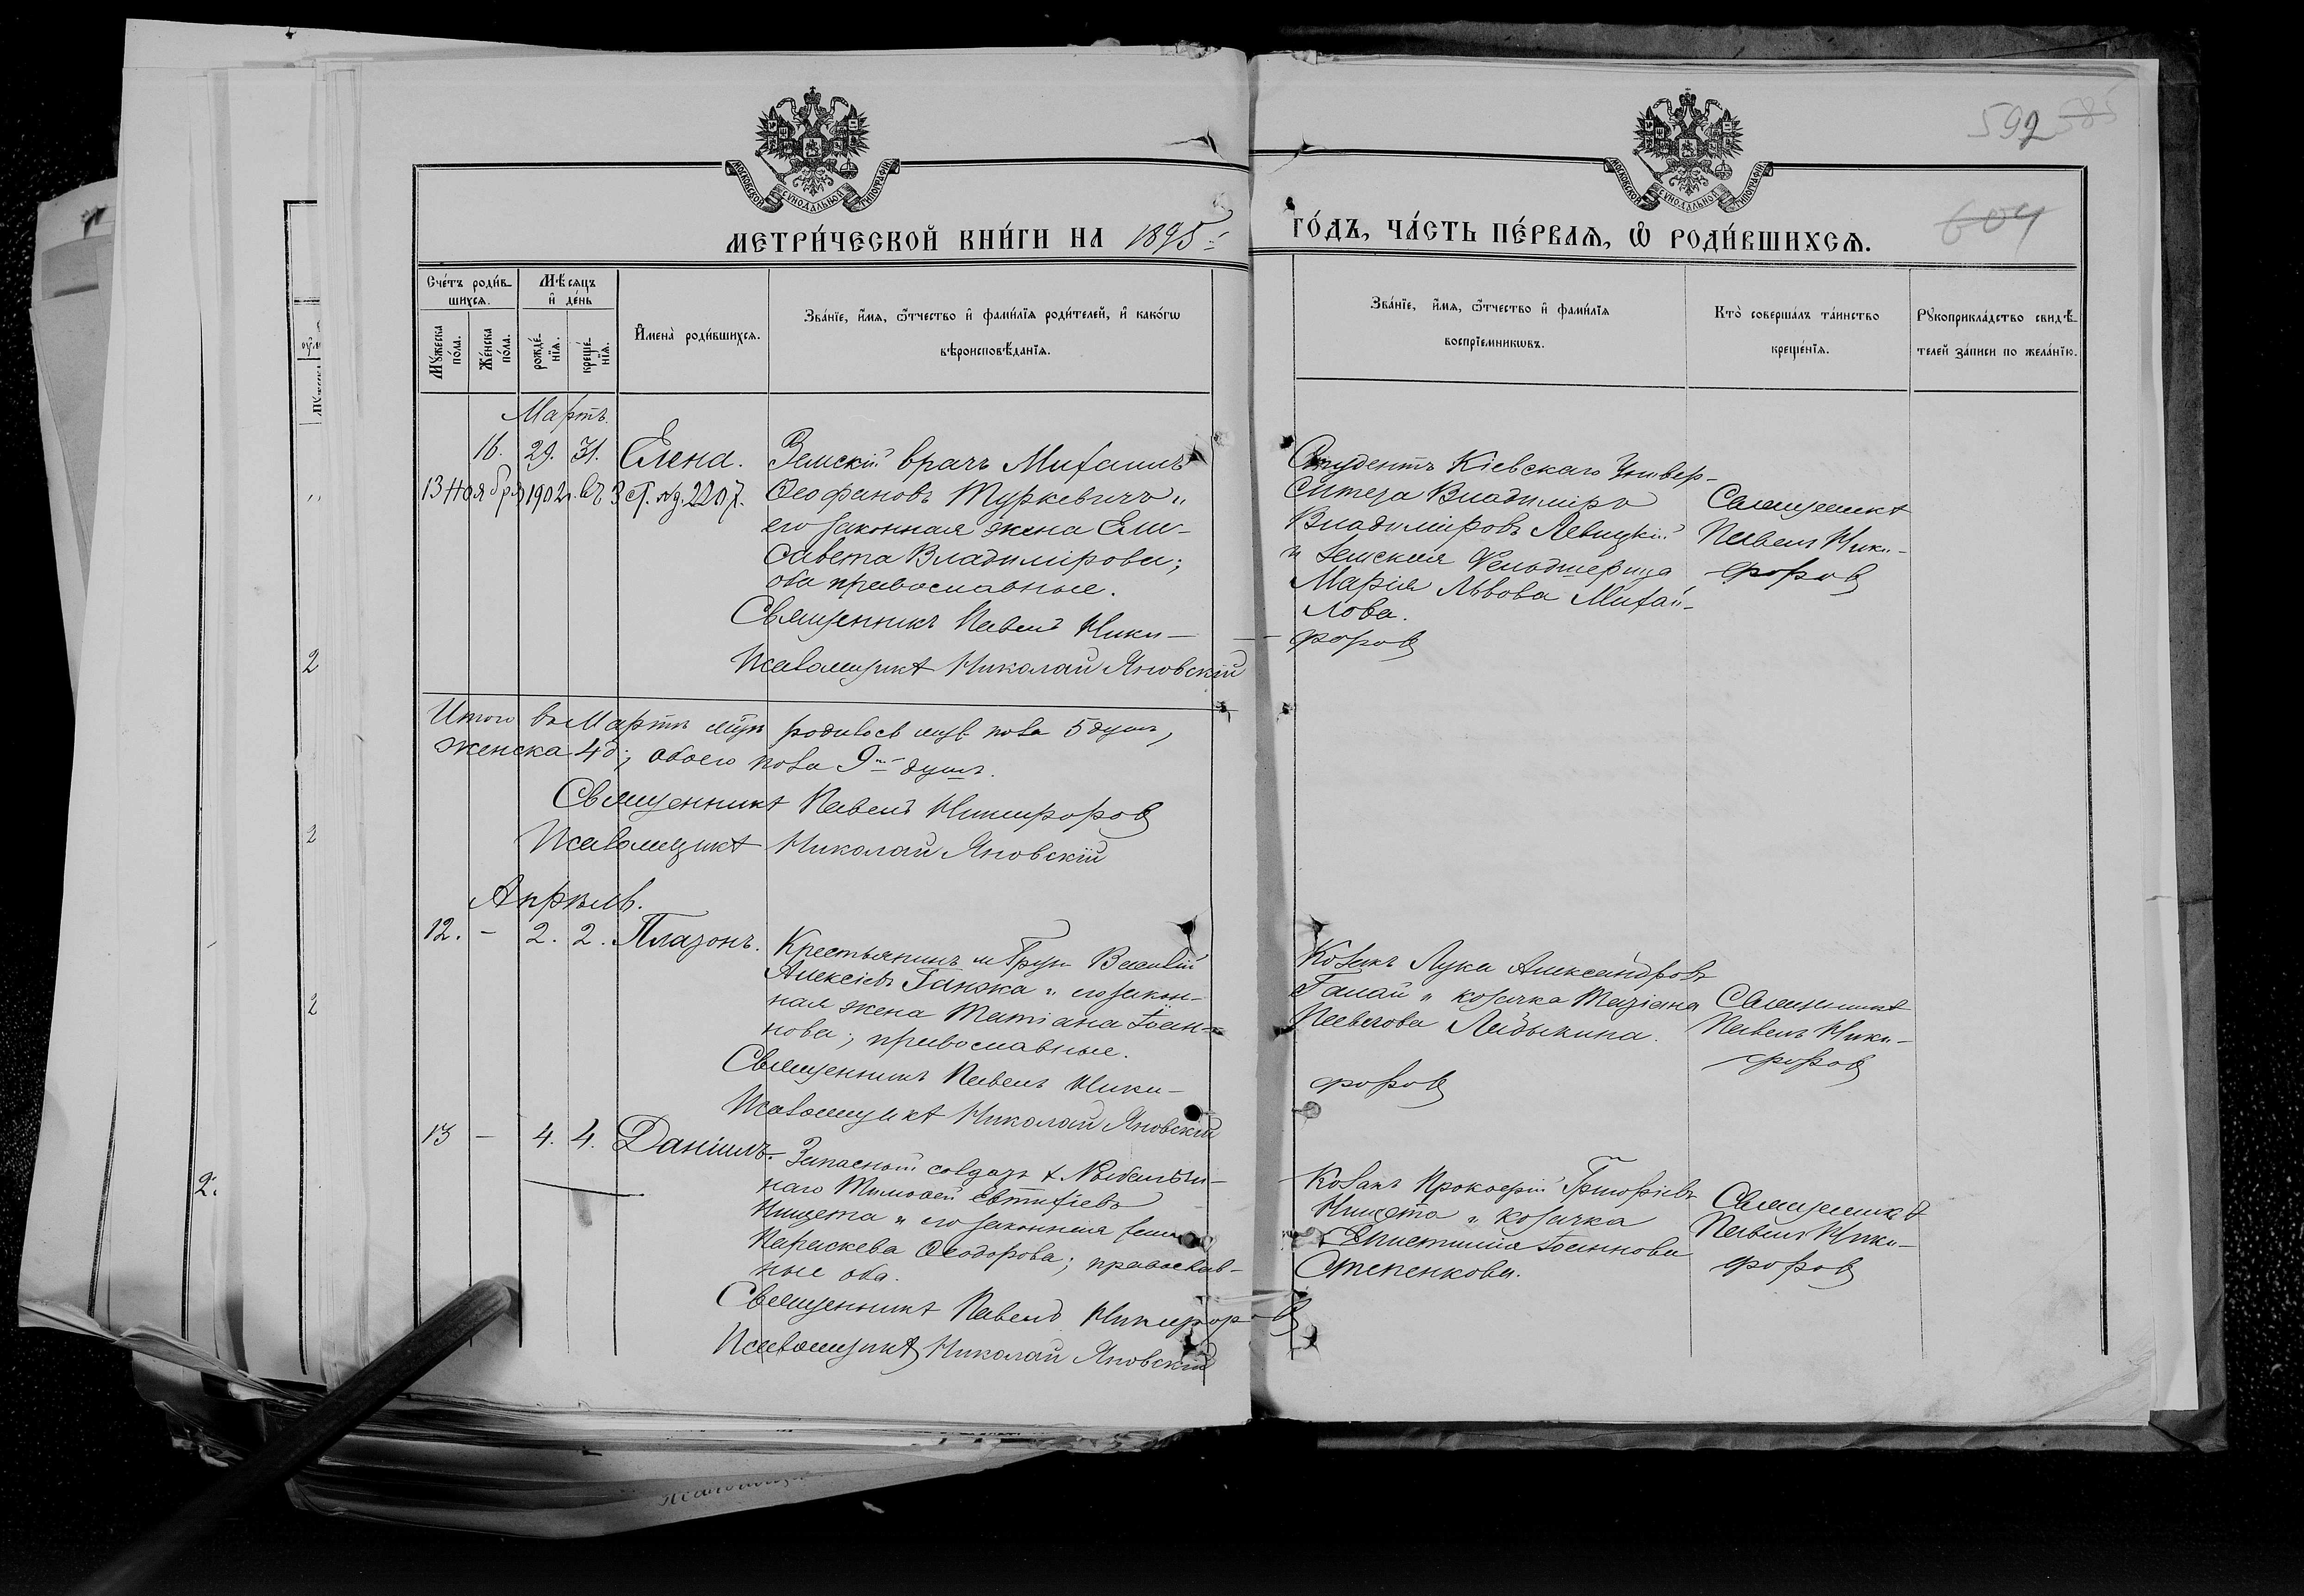 592 585
604
МОСКОВСКОЙ СѴНОДАЛЬНОЙ ТИПОГРАФІИ
МОСКОВСКОЙ СѴНОДАЛЬНОЙ ТИПОГРАФІИ
МЕТРИ́ЧЕСКОЙ КНИ́ГИ НА 1895 г.
ГО́ДЪ, ЧА́СТЬ ПЕ́РВАѦ, Ѡ РОДИ́ВШИХСѦ.
Сче́тъ роди́в-
шихсѧ.
Мꙋ́жеска по́ла.
Же́нска по́ла.
Мѣ́сѧцъ
и҆ де́нь
рожде́-
нїѧ.
креще́-
нїѧ.
И҆мена̀ роди́вшихсѧ.
Зва́нїе, и҆́мѧ, ѻ҆́тчество и҆ фами́лїѧ роди́телей, и҆ како́гѡ
вѣроисповѣ́данїѧ.
Зва́нїе, и҆́мѧ, ѻ҆́тчество и҆ фами́лїѧ
воспрїе́мникѡвъ.
Кто̀ соверша́лъ та́инство
креще́нїѧ.
Рꙋкоприкла́дство свидѣ́-
телей за́писи по жела́нїю.
Мартъ.
16. 29. 31. Елена.
13 Ноября 1902 г. № 2207.
Земскій врачъ Михаилъ
Ѳеофановъ Туркевичъ и
его законная жена Ели-
савета Владимірова;
оба православные.
Священникъ Павелъ Ники-
форовъ
Псаломщикъ Николай Яновскій
Студентъ Кіевскаго Универ-
ситета Владиміръ
Владиміровъ Левицкій
и земская Фельдшерица
Марія Львова Михай-
лова.
Священникъ
Павелъ Ники-
форовъ
Итого въ Мартѣ мѣц. родилось муж. пола 5 душъ,
женска 4 д.; обоего пола 9ть душъ.
Священникъ Павелъ Никифоровъ
Псаломщикъ Николай Яновскій
Апрѣль.
12. – 2. 2. Плазонъ.
Крестьянинъ м. Груни Василій
Алексіевъ Ганжа и его закон-
ная жена Татіана Іоан-
нова; православные.
Священникъ Павелъ Ники-
форовъ
Псаломщикъ Николай Яновскій
Козакъ Лука Александровъ
Галай и козачка Татіана
Павлова Лядыкина.
Священникъ
Павелъ Ники-
форовъ
13 – 4. 4. Даніилъ.
Запасный солдатъ х.
наго Тимоѳей Евтихіевъ
Нищета и его законная жена
Параскева Ѳеодорова; православ-
ные оба.
Священникъ Павелъ Никифоровъ
Псаломщикъ Николай Яновскій
Козакъ Прокопій Григоріевъ
Нищета и козачка
Іоаннова
Степенкова.
Священникъ
Павелъ Ники-
форовъ
2
2
2
2.